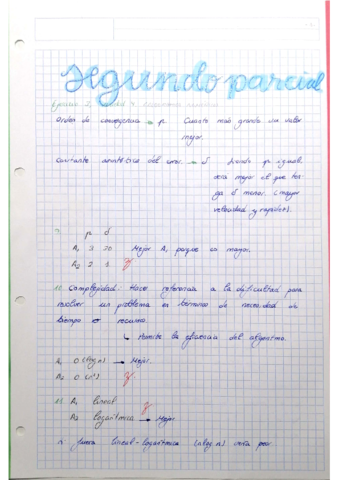 Segundo parcial
Ejercicio 2
Orden de convergencia → p. Cuanto más grande su valor
mejor.
Constante asintótica del error. → δ Siendo p igual
será mejor el que ten-
ga δ menor. (mayor
velocidad y rapidez).
p δ
A₁ 3 20 Mejor A₁ porque es mayor.
A₂ 2 1
10 Complejidad: Hace referencia a la dificultad para
resolver un problema en términos de necesidad de
tiempo recursos.
↳ Permite la eficiencia del algoritmo.
A₁ O(log n) → Mejor.
A₂ O(n²)
11 A₁ lineal
A₂ logarítmica → Mejor
fuera lineal-logarítmica (n log n) sería peor